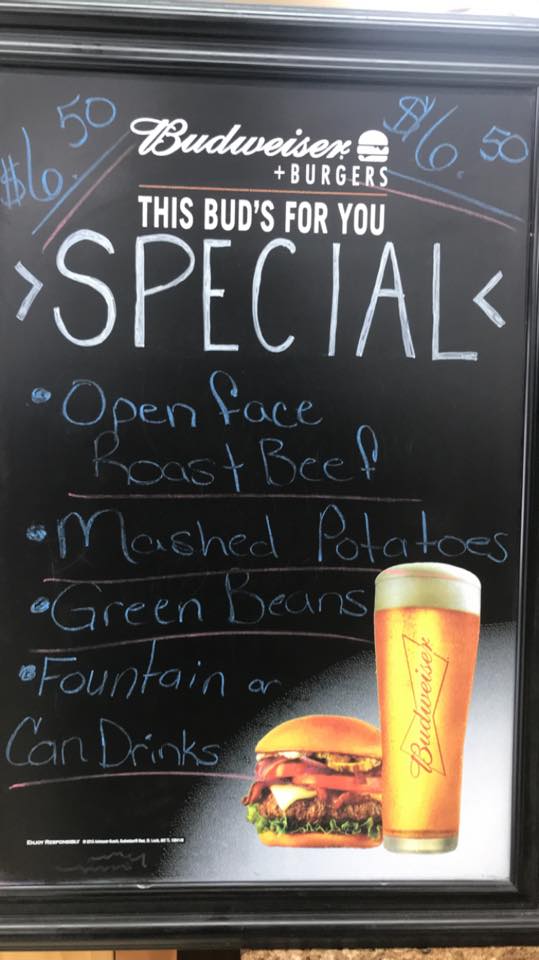 $6.50
$6.50
Budweiser
+BURGERS
THIS BUD'S FOR YOU
>SPECIAL<
• Open face
Roast Beef
• Mashed Potatoes
• Green Beans
• Fountain or
Can Drinks
Budweiser
ENJOY RESPONSIBLY